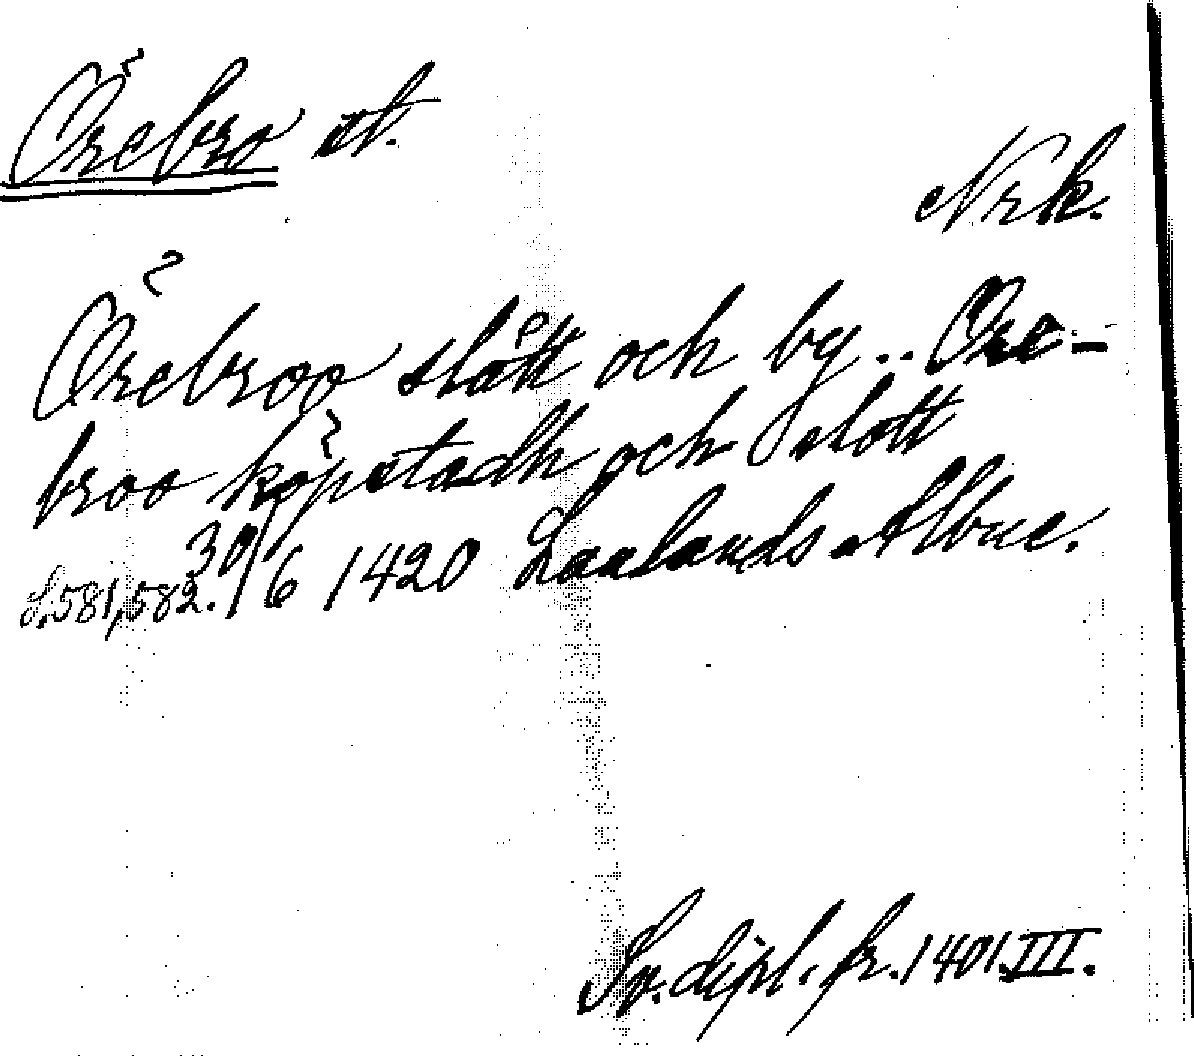 Örebro st.
Nrk.
Örebroo slått och by.. Ore-
broo köpstadh och slott
30/6 1420 Laalands Albue.
S. 581, 582.
Sv. dipl. fr. 1401. III.